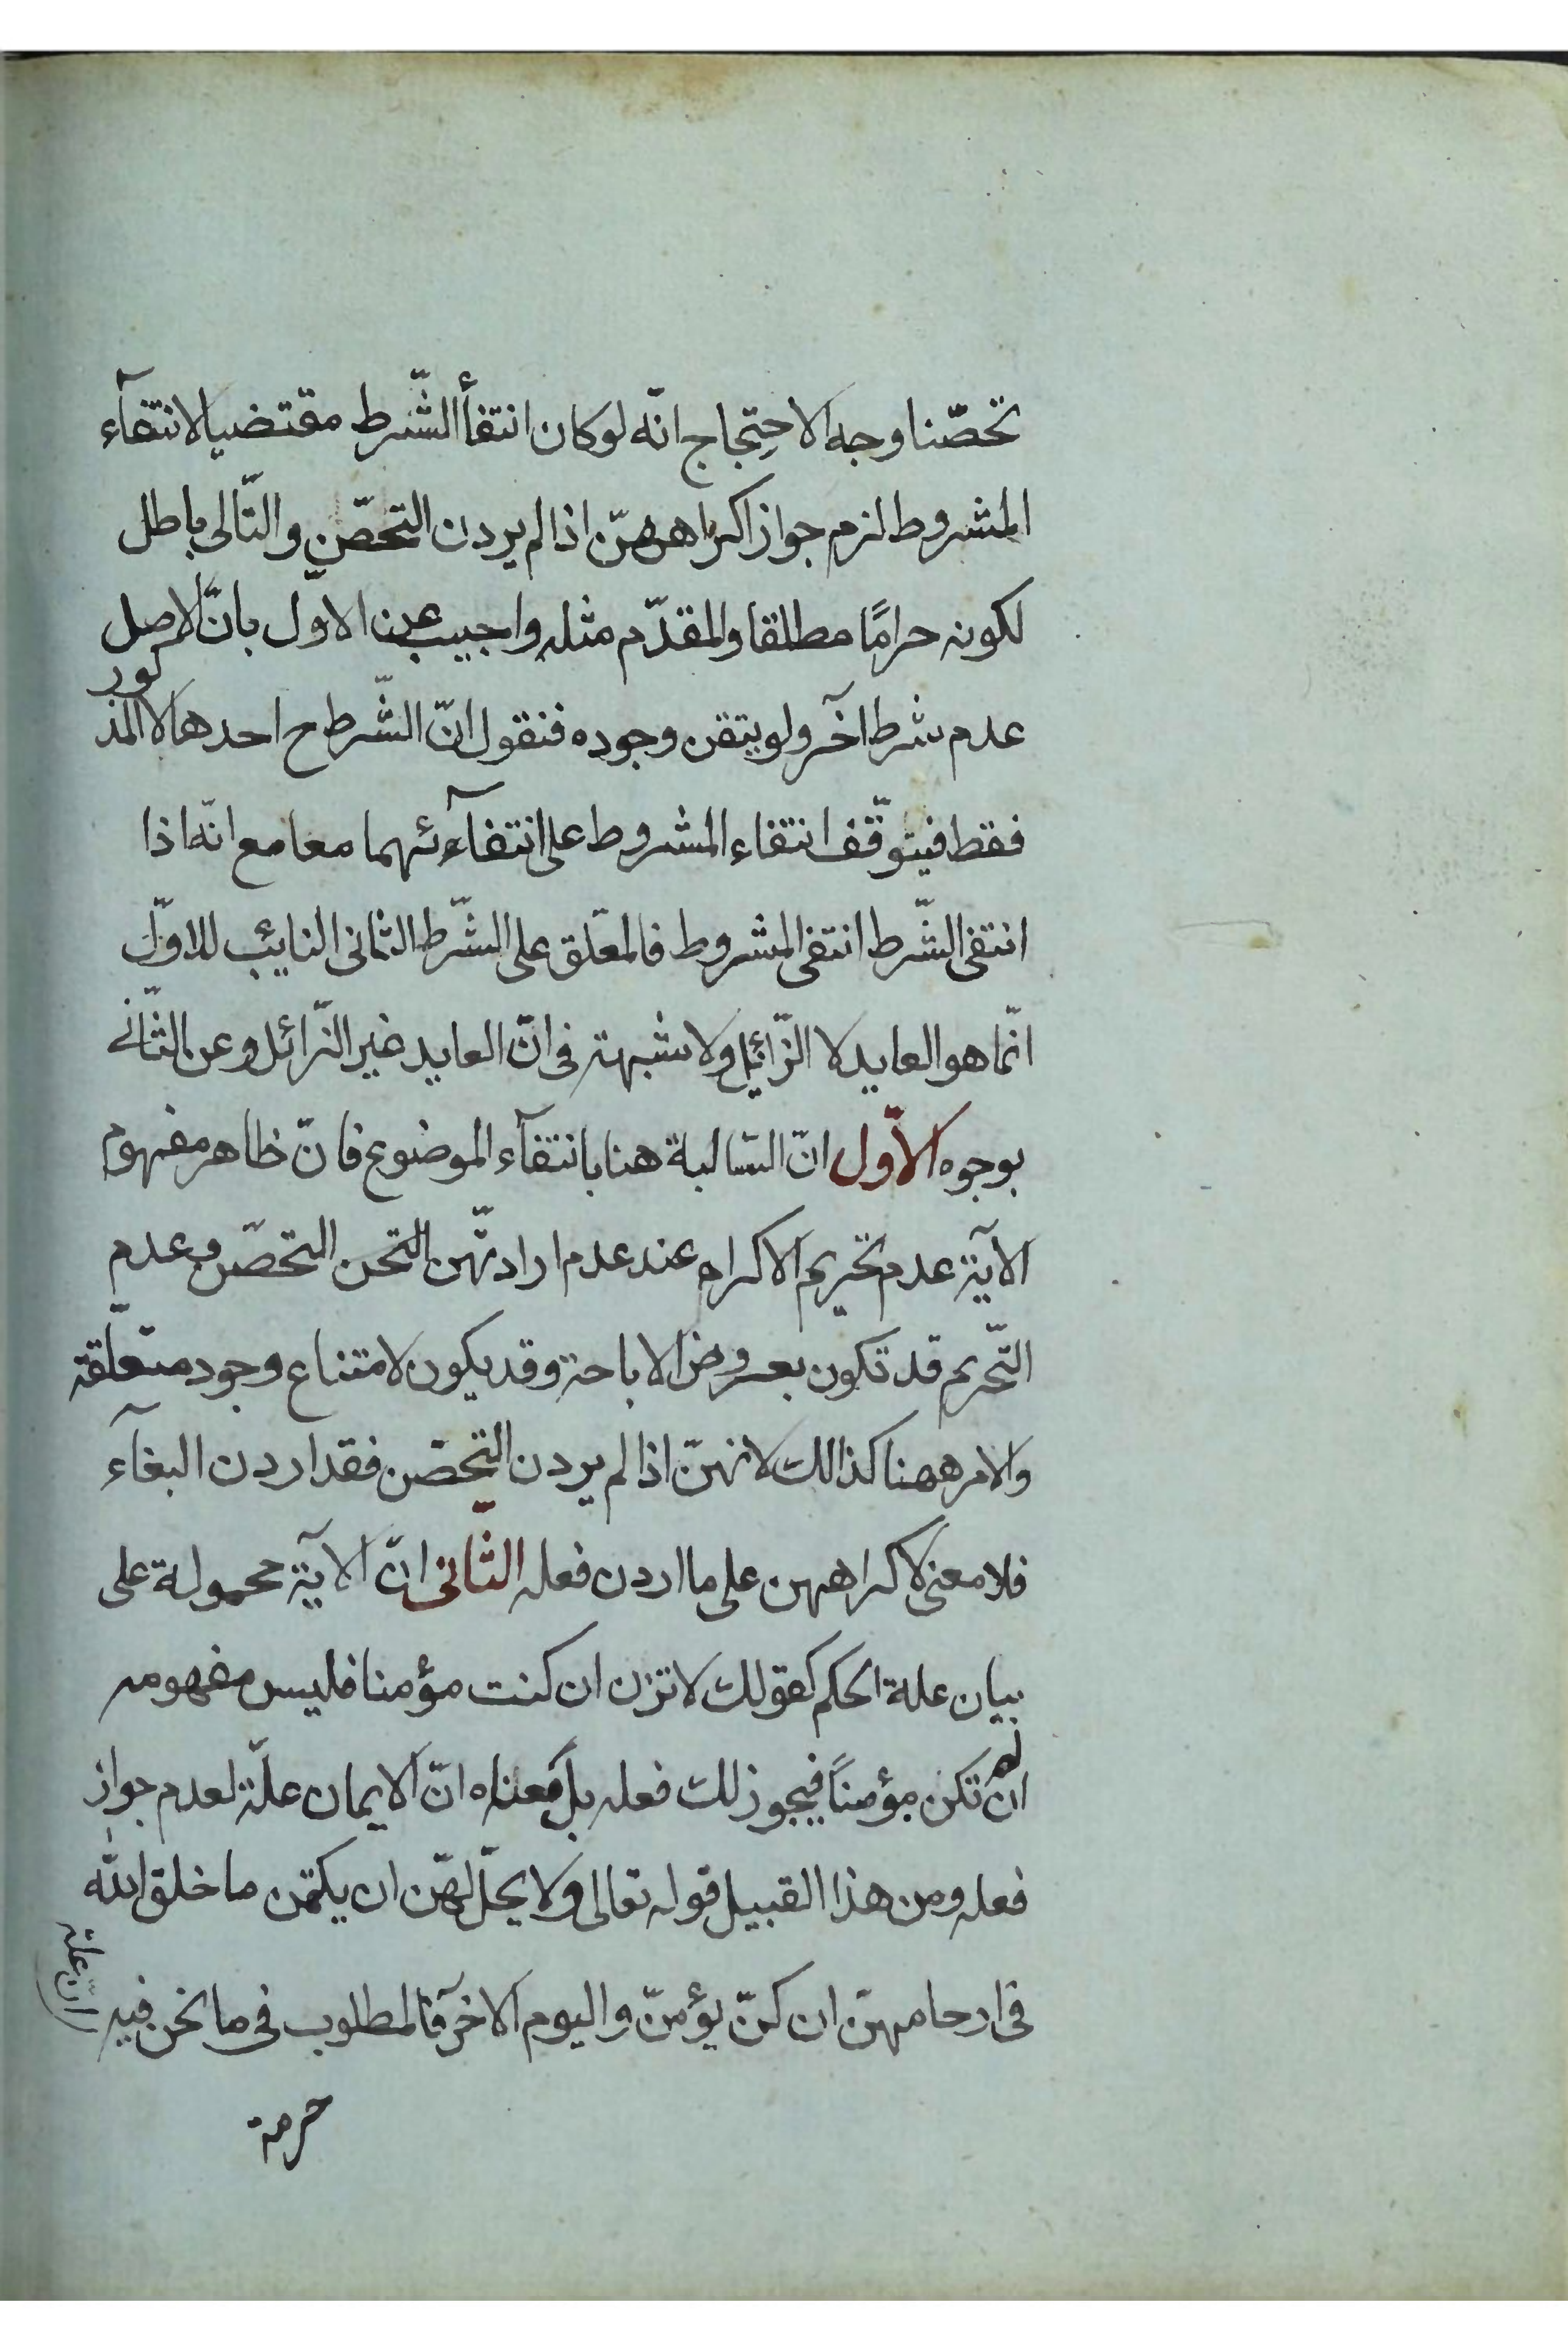 تحصّنا وجه الاحتجاج انّه لو كان انتفأ الشّرط مقتضيا لانتفآء
المشروط لزم جواز اكراههنّ اذا لم يردن التحصّن والتّالى باطل
لكونه حرامًا مطلقا والمقدّم مثله واجيب عن الاوّل بانّ الاصل
عدم شرط آخر ولو يتقن وجوده فنقول انّ الشّرط ح احدهما لا المذكور
فقط فيتوقّف انتفاء المشروط على انتفآئهما معا مع انّه اذا
انتفى الشّرط انتفى المشروط فالمعلّق على الشّرط الثانى النايئب للاوّل
انّما هو العايد لا الزّائيل ولا شبهة فى انّ العايد غير الزّائل وعن الثّانى
بوجوه الاوّل انّ السّالبة هنا بانتفآء الموضوع فانّ ظاهر مفهوم
الآية عدم تحريم الاكراه عند عدم ارادتهّن التحن التحصّن وعدم
التّحريم قد تكون بعروض الاباحة وقد يكون لامتناع وجود متعلّقة
والامر ههنا كذالك لانهنّ اذا لم يردن التحصّن فقد اردن البغآء
فلا معنى لاكراههن على ما اردن فعله الثّانى انّ الآية محمولة على
بيان علة الحكم كقولك لا تزن ان كنت مؤمنا فليس مفهومه
ان لم تكن مؤمناً فيجوز لك فعله بل معناه انّ الايمان علّة لعدم جواز
فعله ومن هذا القبيل قوله تعالى ولا يحلّ لهّن ان يكتمن ما خلق الله
فى ارحامهنّ ان كنّ يؤمنّ واليوم الاخر فالمطلوب فى ما نحن فيه انّ علة
حرمة